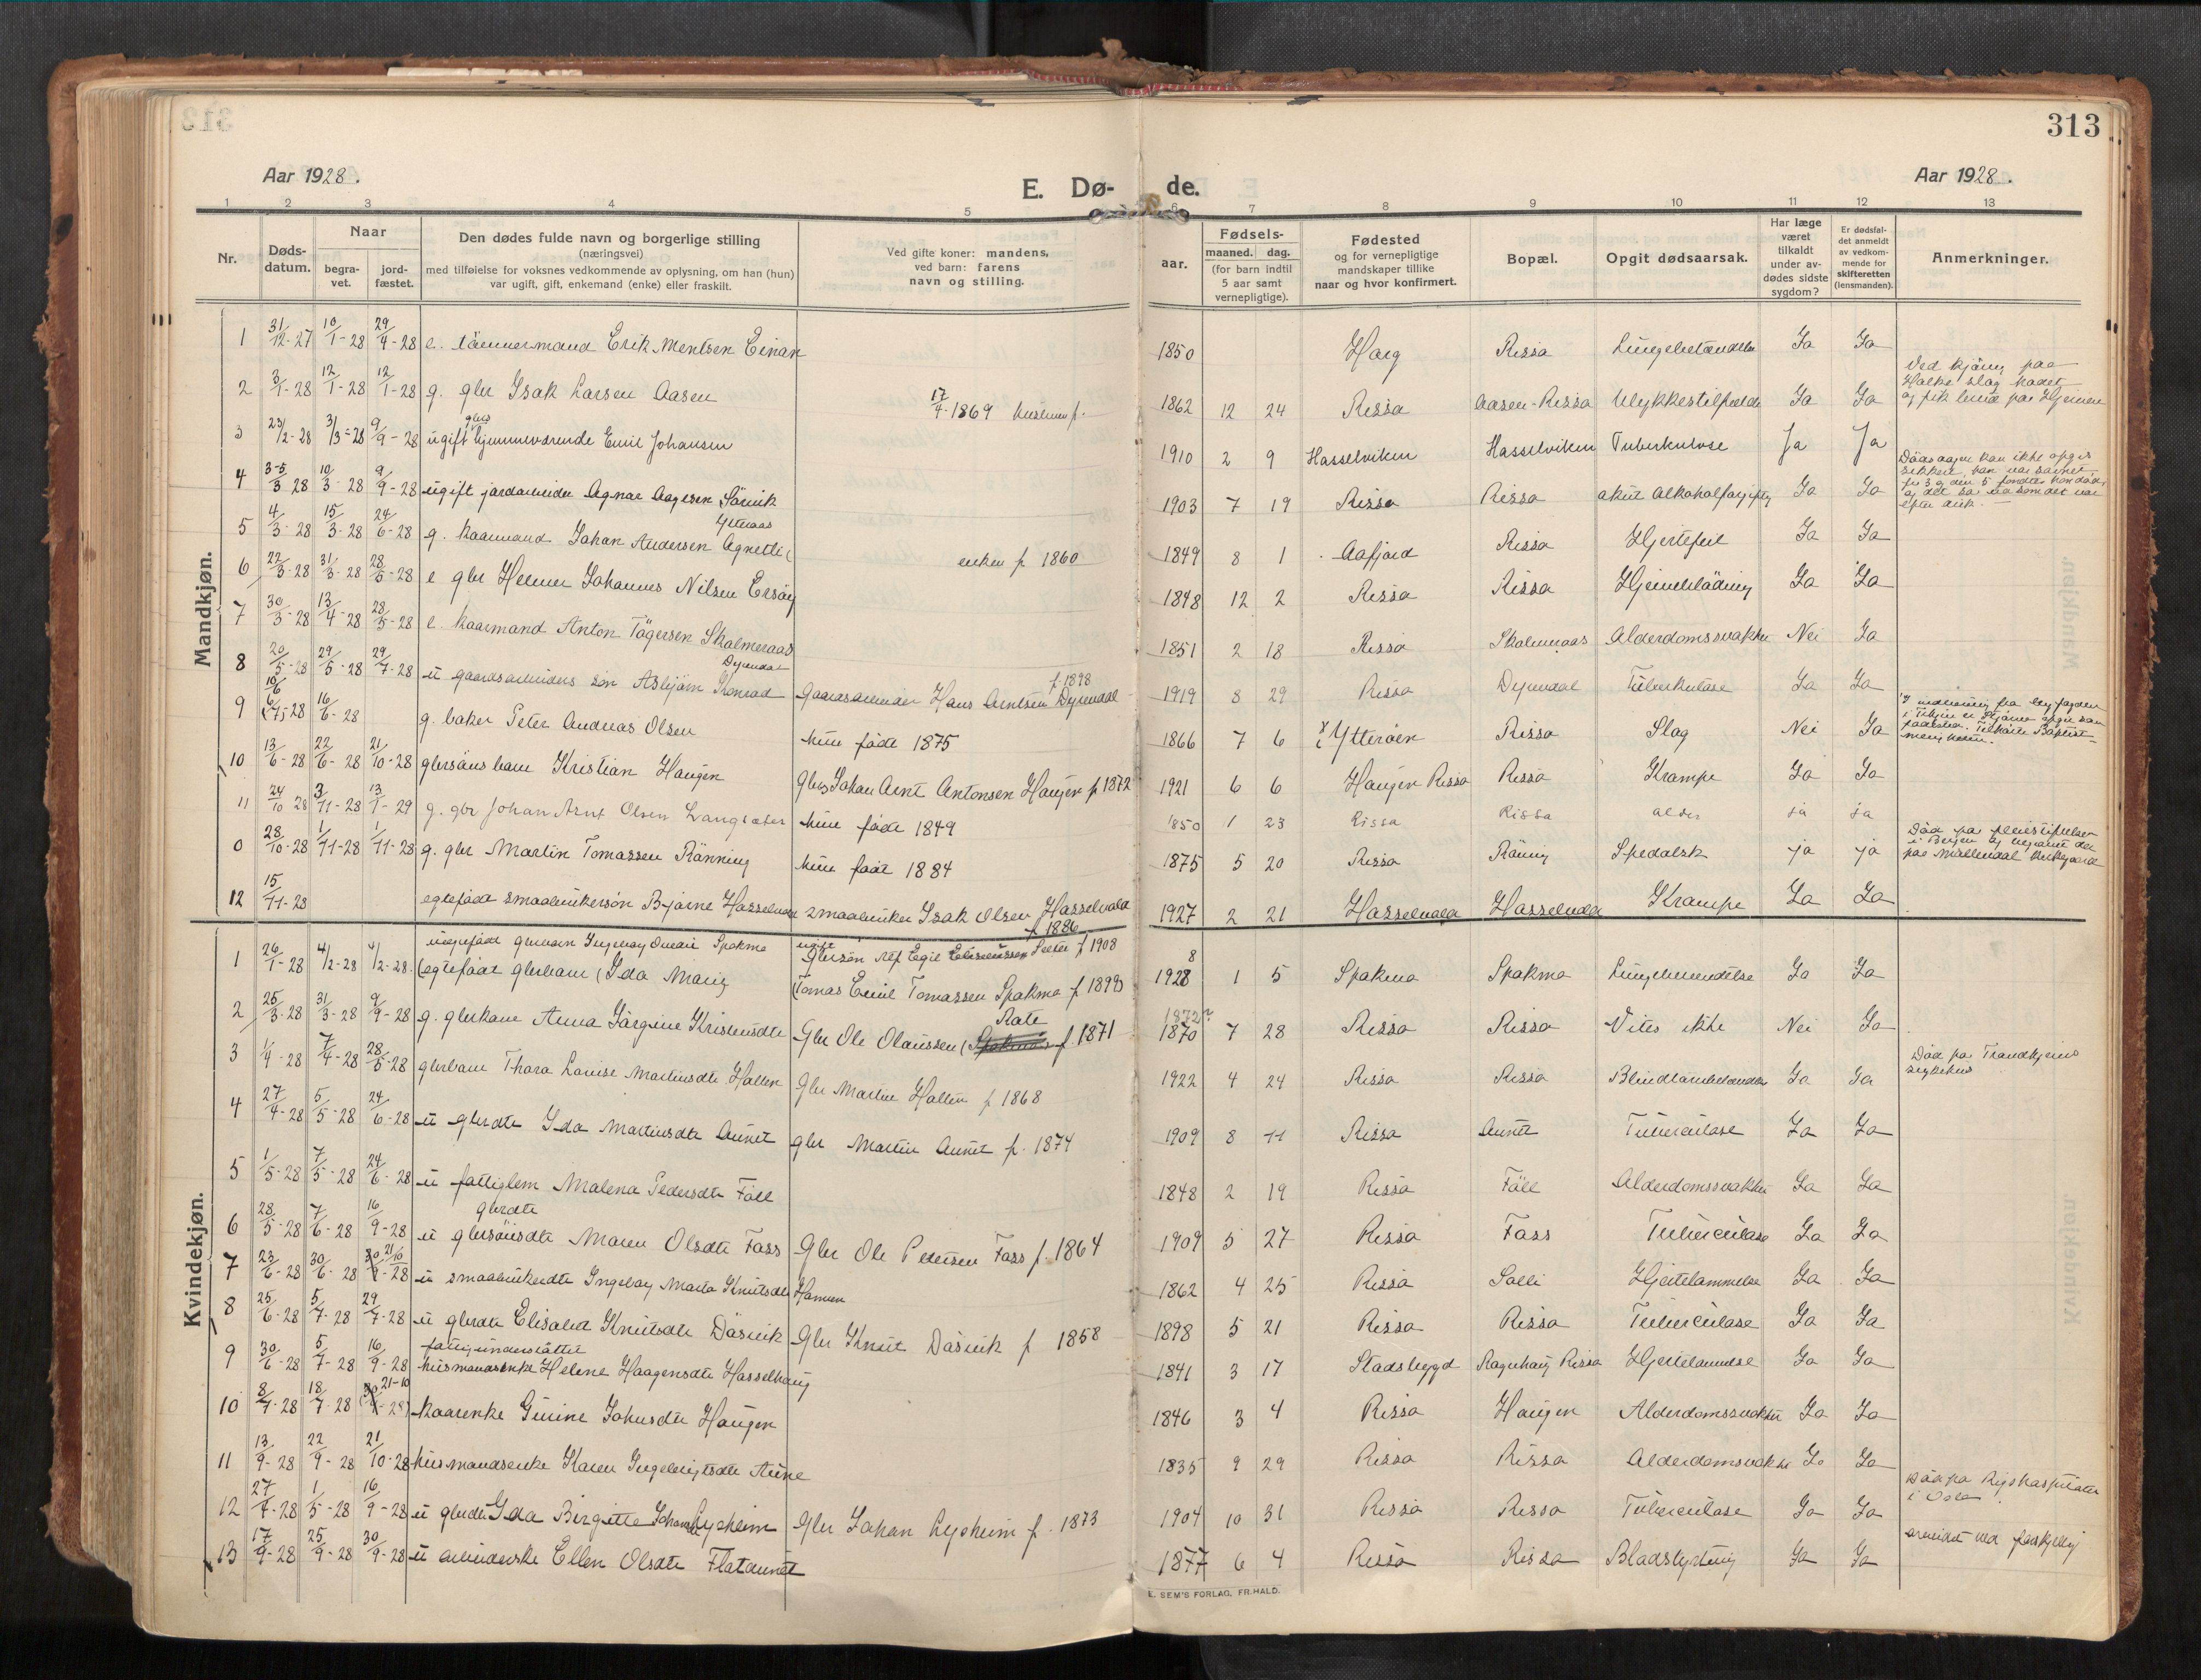 313
Aar 1928.
E. Dø- de.
Aar 1928.
1 2 3 4 5 6 7 8 9 10 11 12 13
Nr.
Døds-datum.
Naar
begra-vet.
jord-fæstet.
Den dødes fulde navn og borgerlige stilling
(næringsvei)
med tilføielse for voksnes vedkommende av oplysning, om han (hun)
var ugift, gift, enkemand (enke) eller fraskilt.
Ved gifte koner: mandens,
ved barn: farens
navn og stilling.
Fødsels-
aar.
maaned. dag.
(for barn indtil
5 aar samt
vernepligtige).
Fødested
og for vernepligtige
mandskaper tillike
naar og hvor konfirmert.
Bopæl.
Opgit dødsaarsak.
Har læge
været
tilkaldt
under av-
dødes sidste
sygdom?
Er dødsfal-
det anmeldt
av vedkom-
mende for
skifteretten
(lensmanden).
Anmerkninger.
Mandkjøn.
1 31/12-27 10/1-28 29/4-28 e. tømmermand Erik Mentsen Einan 1850 Harg Rissa Lungebetændelse Ja Ja
2 3/1-28 12/1-28 12/1-28 g. gbr Isak Larsen Aasen 17/4-1869 hustruen f. 1862 12 24 Rissa Aasen-Rissa Ulykkestilfælde Ja Ja Ved kjøring paa
3 23/2-28 3/3-28 9/9-28 ugift gbrs hjemmeværende Emil Johansen 1910 2 9 Hasselviken Hasselviken Tuberkulose Ja Ja
4 3-5/3 28 10/3-28 9/9-28 ugift jordarbeider Agnar Aagesen Sörvik 1903 7 19 Rissa Rissa akut Alkoholforgiftg Ja Ja Dödsdagen kan ikke opgis sikkert, han var savnet fra 3 og den 5 fandtes han död,
5 4/3-28 15/3-28 24/6-28 g. kaarmand Johan Andersen Agnetli Ytteraas enken f 1860 1849 8 1 Aafjord Rissa Hjertefeil Ja Ja
6 22/3-28 31/3-28 28/5-28 e gbr Helmer Johannes Nilsen Ersöy 1848 12 2 Rissa Rissa Hjerneblödning Ja Ja
7 30/3-28 13/4-28 28/5-28 e. kaarmand Anton Tögersen Skalmeraas 1851 2 18 Rissa Skalmeraas Alderdomssvakhet Nei Ja
8 20/5-28 29/5-28 29/7-28 u gaardsarbeiders sön Asbjörn Konrad Dyrendal Gaardsarbeider Hans Arntsen Dyrendal f 1898 1919 8 29 Rissa Dyrendal Tuberkulose Ja Ja
9 16/6-28 g. baker Peter Andreas Olsen hun födt 1875 1866 7 6 Ytteröen Rissa Slag Nei Ja
10 13/6-28 22/6-28 21/10-28 gbrsöns barn Kristian Haugen Gbr Johan Arnt Antonsen Haugen f 1872 1921 6 6 Haugen Rissa Rissa Krampe Ja Ja
11 24/10 28 3/11-28 13/1-29 g. gbr Johan Arnt Olsen Langsæter hun födt 1849 1850 1 23 Rissa Rissa alder ja ja
0 28/10-28 1/11-28 1/11-28 g. gbr Martin Tomassen Rönning hun födt 1884 1875 5 20 Rissa Röning Spedalsk ja ja Död paa pleiestiftelsen i Bergen og begravet der paa Möllendal kirkegaard
12 15/11-28 egtefödt smaabrukersön Bjarne Hasselvold smaabruker Isak Olsen Hasselvold f 1886 1927 2 21 Hasselvold Hasselvold Krampe Ja Ja
Kvindekjøn.
1 26/1-28 4/2-28 4/2-28 Spakmo (egtefödt gbrbarn (Ida Marig Gbrsön Alf Egil Sæter f 1908 (Tomas Emil Tomassen Spakmo f 1898) 1928 1 5 Spakmo Spakmo Lungebetændelse Ja Ja
2 25/3-28 31/3-28 9/9-28 g. gbrkone Anna Jörgine Kristensdtr Gbr Ole Olaussen Rate f 1871 1872? 1870 7 28 Rissa Rissa Vites ikke Nei Ja
3 1/4-28 7/4-28 28/5-28 gbrbarn Thora Lovise Martinsdtr Hallen Gbr Martin Hallen f 1868 1922 4 24 Rissa Rissa Blindtarmbetændelse Ja Ja Död paa Trondhjems sykehus
4 27/4-28 5/5-28 24/6-28 u gbrdtr Ida Martinsdtr Aunet gbr Martin Aunet f. 1874 1909 8 11 Rissa Aunet Tuberculose Ja Ja
5 1/5-28 7/5-28 24/6-28 u fattiglem Malena Pedersdtr Föll 1848 2 19 Rissa Föll Alderdomssvakhet Ja Ja
6 28/5-28 7/6-28 16/9-28 u gbrsönsdtr gbrdtr Maren Olsdtr Fass Gbr Ole Pedersen Fass f. 1864 1909 5 27 Rissa Fass Tuberculose Ja Ja
7 23/6-28 30/6-28 21/10-28 u smaabrukerdtr Ingeborg Marta Knutsdtr Hamren 1862 4 25 Rissa Solli Hjertelammelse Ja Ja
8 25/6-28 5/7-28 29/7-28 u gbrdtr Elisabet Knutsdtr Däsvik Gbr Knut Däsvik f 1858 1898 5 21 Rissa Rissa Tuberculose Ja Ja
9 30/6-28 5/7-28 16/9-28 fattigunderstöttet husmandsenke Helene Haagensdtr Hasselhaug 1841 3 17 Stadsbygd Ragnhaug Rissa Hjertelammelse Ja Ja
10 8/7-28 18/7-28 21-10 kaarenke Gurine Johnsdtr Haugen 1846 3 4 Rissa Haugen Alderdomssvakhet Ja Ja
11 13/9-28 22/9-28 21/10-28 husmandsenke Karen Ingebrigtsdtr Aune 1835 9 29 Rissa Rissa Alderdomsvakhet Ja Ja
12 27/4-28 1/5-28 16/9-28 u gbrdtr Ida Birgitte Johansd Lysheim Gbr Johan Lysheim f. 1873 1904 10 31 Rissa Rissa Tuberculose Ja Ja Död paa Rigshospitalet i Oslo
13 17/9-28 25/9-28 30/9-28 u arbeiderske Ellen Olsdtr Flataunet 1877 6 4 Rissa Rissa Blodstyrtning Ja Ja arbeidet ved forskjellig
E. SEM'S FORLAG, FR.HALD.